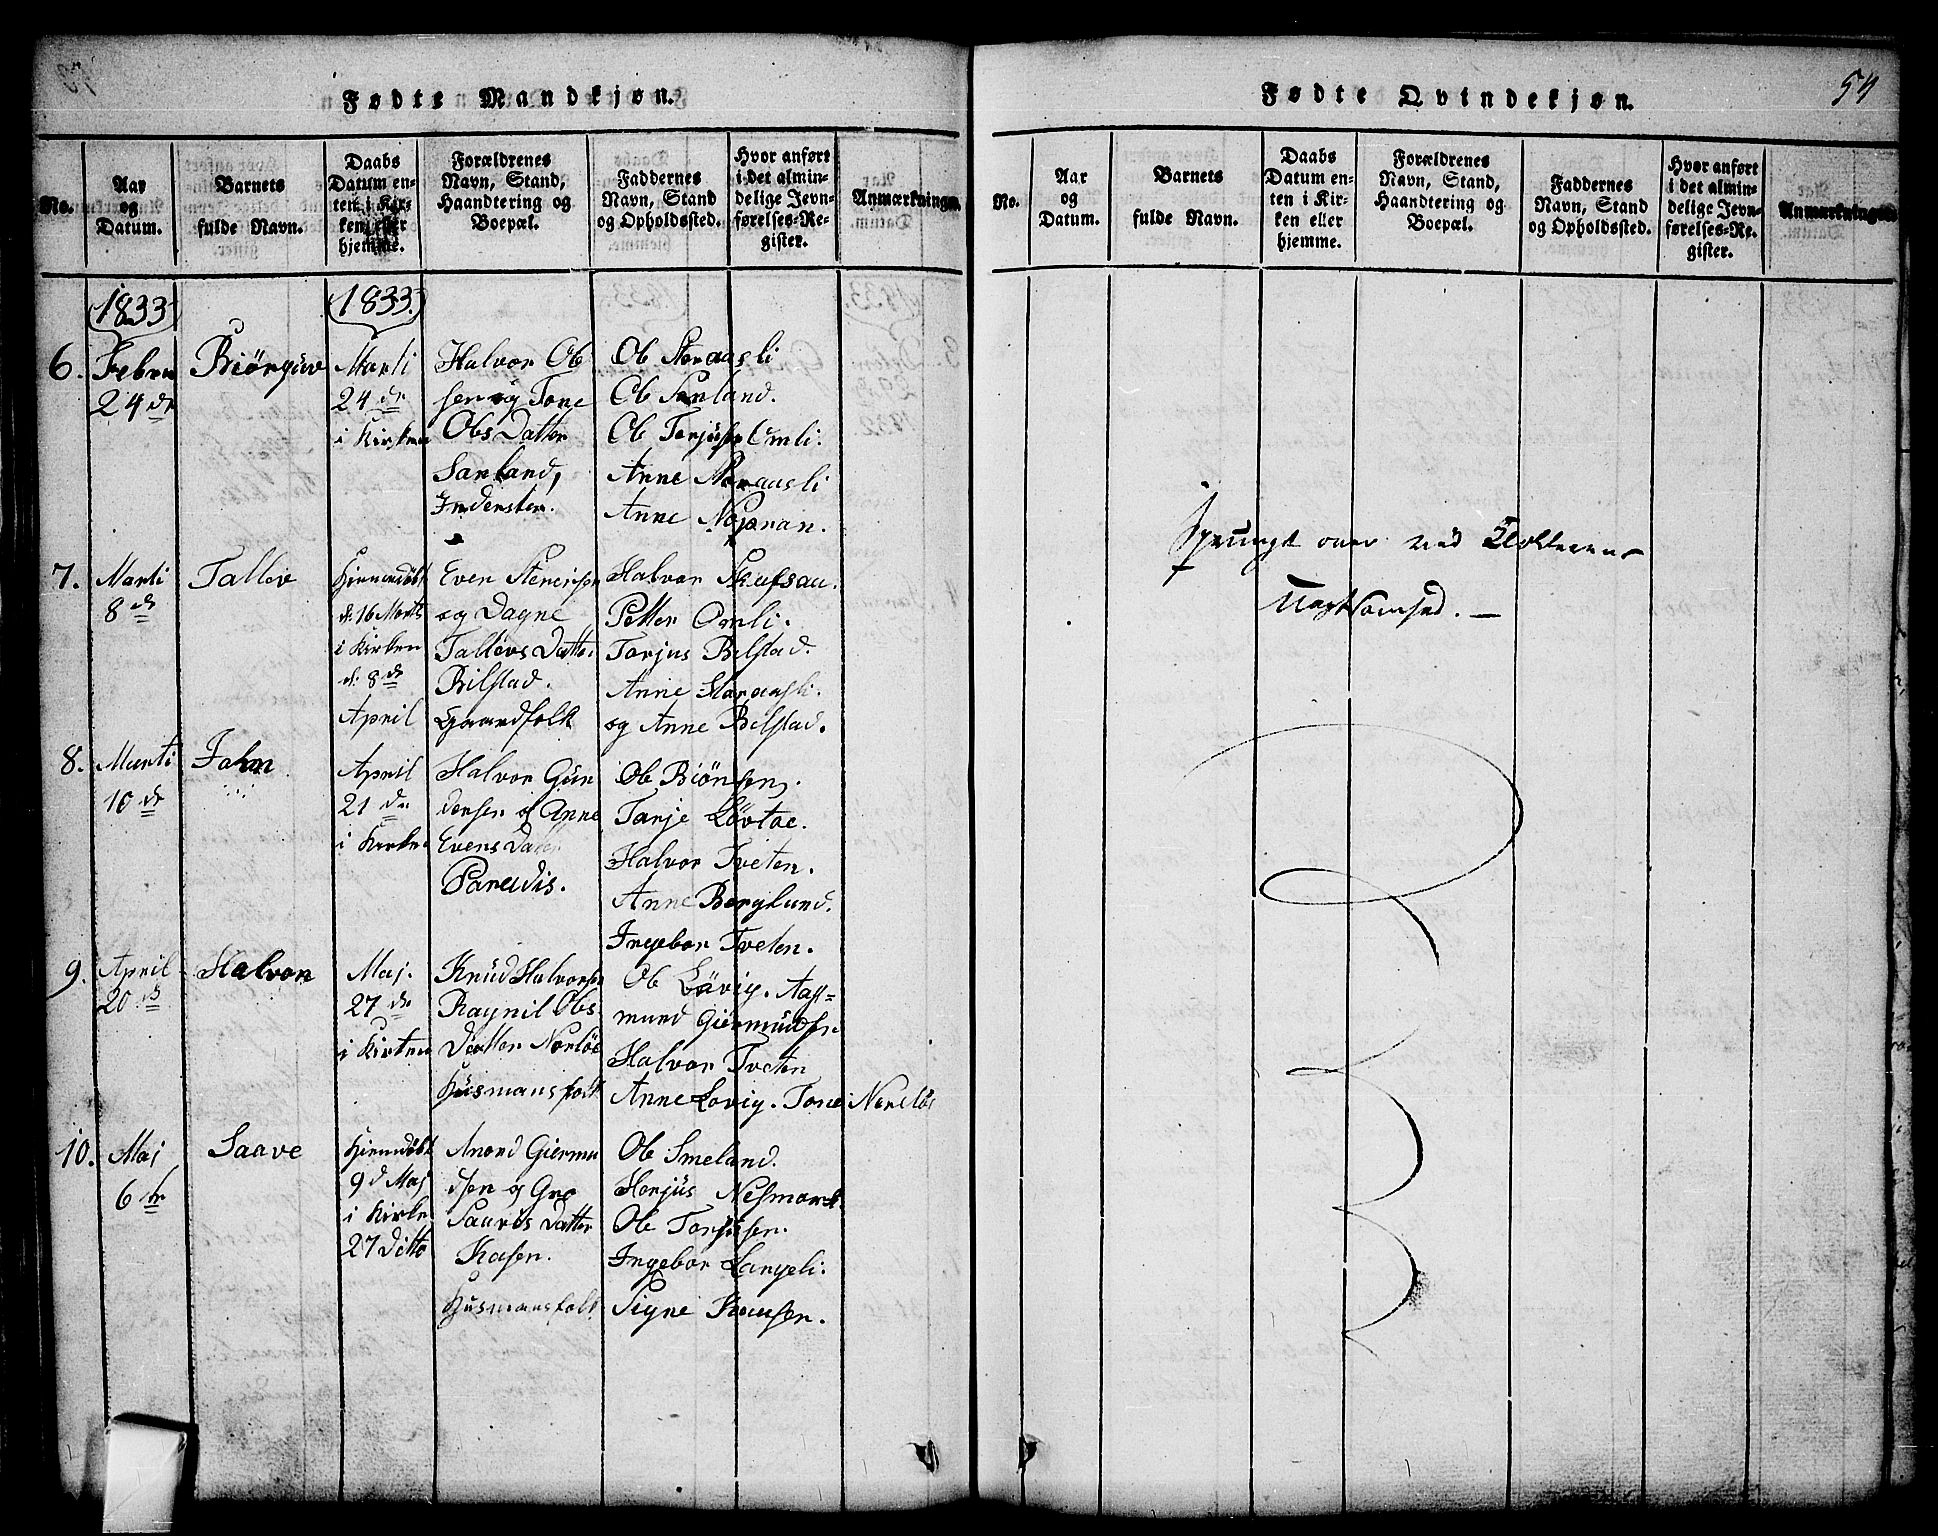 Fødte Mandkjøn.
No.
Aar
og
Datum.
Barnets
fulde Navn.
Daabs
Datum en-
ten i Kir-
ken eller
hjemme.
Forældrenes
Navn, Stand,
Haandtering og
Boepæl.
Faddernes
Navn, Stand
og Opholdssted.
Hvor anført
i det almin-
delige Jevn-
førelses-Re-
gister.
Anmærkninger.
1833
1833.
6.
Febru
24 de
Biörguv
Marti
24 de
i Kirken
Halvor Ob
sen og Tone
Obs Datter
Sanland,
Indersten.
Ob Storaasli
Ob Sanland.
Ob Torjusen Omli.
Anne Storaasli
Anne
7.
Marti
8 de
Tallev
Hjemmdöbt
d. 16 Marti
i Kirken
d. 8 de
April
Even Steners
og Dagne
Tallevs Datter
Bilstad.
Gaardfolk
Halvor Skufsaa.
Petter Omli.
Torjus Belstad.
Anne Storaasli.
og Anne Belstad.
8.
Marti
10 de
John
April
21 de
i Kirken
Halvor Gun
dersen og Anne
Evens Datter
Paradis.
Ob Biönsen.
Tarje Lövtae.
Halvor Tveten.
Anne Berglund.
Ingebor Tveten.
9.
April
20 de
Halvor
Maj.
27 de
i Kirken
Knud Halvorsen
Raynil Obs
Datter Norlöe
Husmansfolk
Ob Lövig. Aas-
mund Giermundsen
Halvor Tveten
Anne Lovig. Tone Norlöe
10.
Maj
6 te
Saave
Hjemmdöbt
9 d Maj
i Kirken
27 Ditto
Anond Giermu
dsen og Gro
Saaves Datter
Kasen.
Husmansfolk
Ob Smeland.
Horjus Nesmark.
Ob Torjusen.
Ingebor Langeli.
Signe Kausen.
Fødte Qvindekjøn.
54
No.
Aar
og
Datum.
Barnets
fulde Navn.
Daabs
Datum en-
ten i Kir-
ken eller
hjemme.
Forældrenes
Navn, Stand,
Haandtering og
Boepæl.
Faddernes
Navn, Stand
og Opholdssted.
Hvor anført
i det almin-
delige Jevn-
førelses-Re-
gister.
Anmærkninger.
Sprungt over ved Klokkerens
Uagtsomhed. —